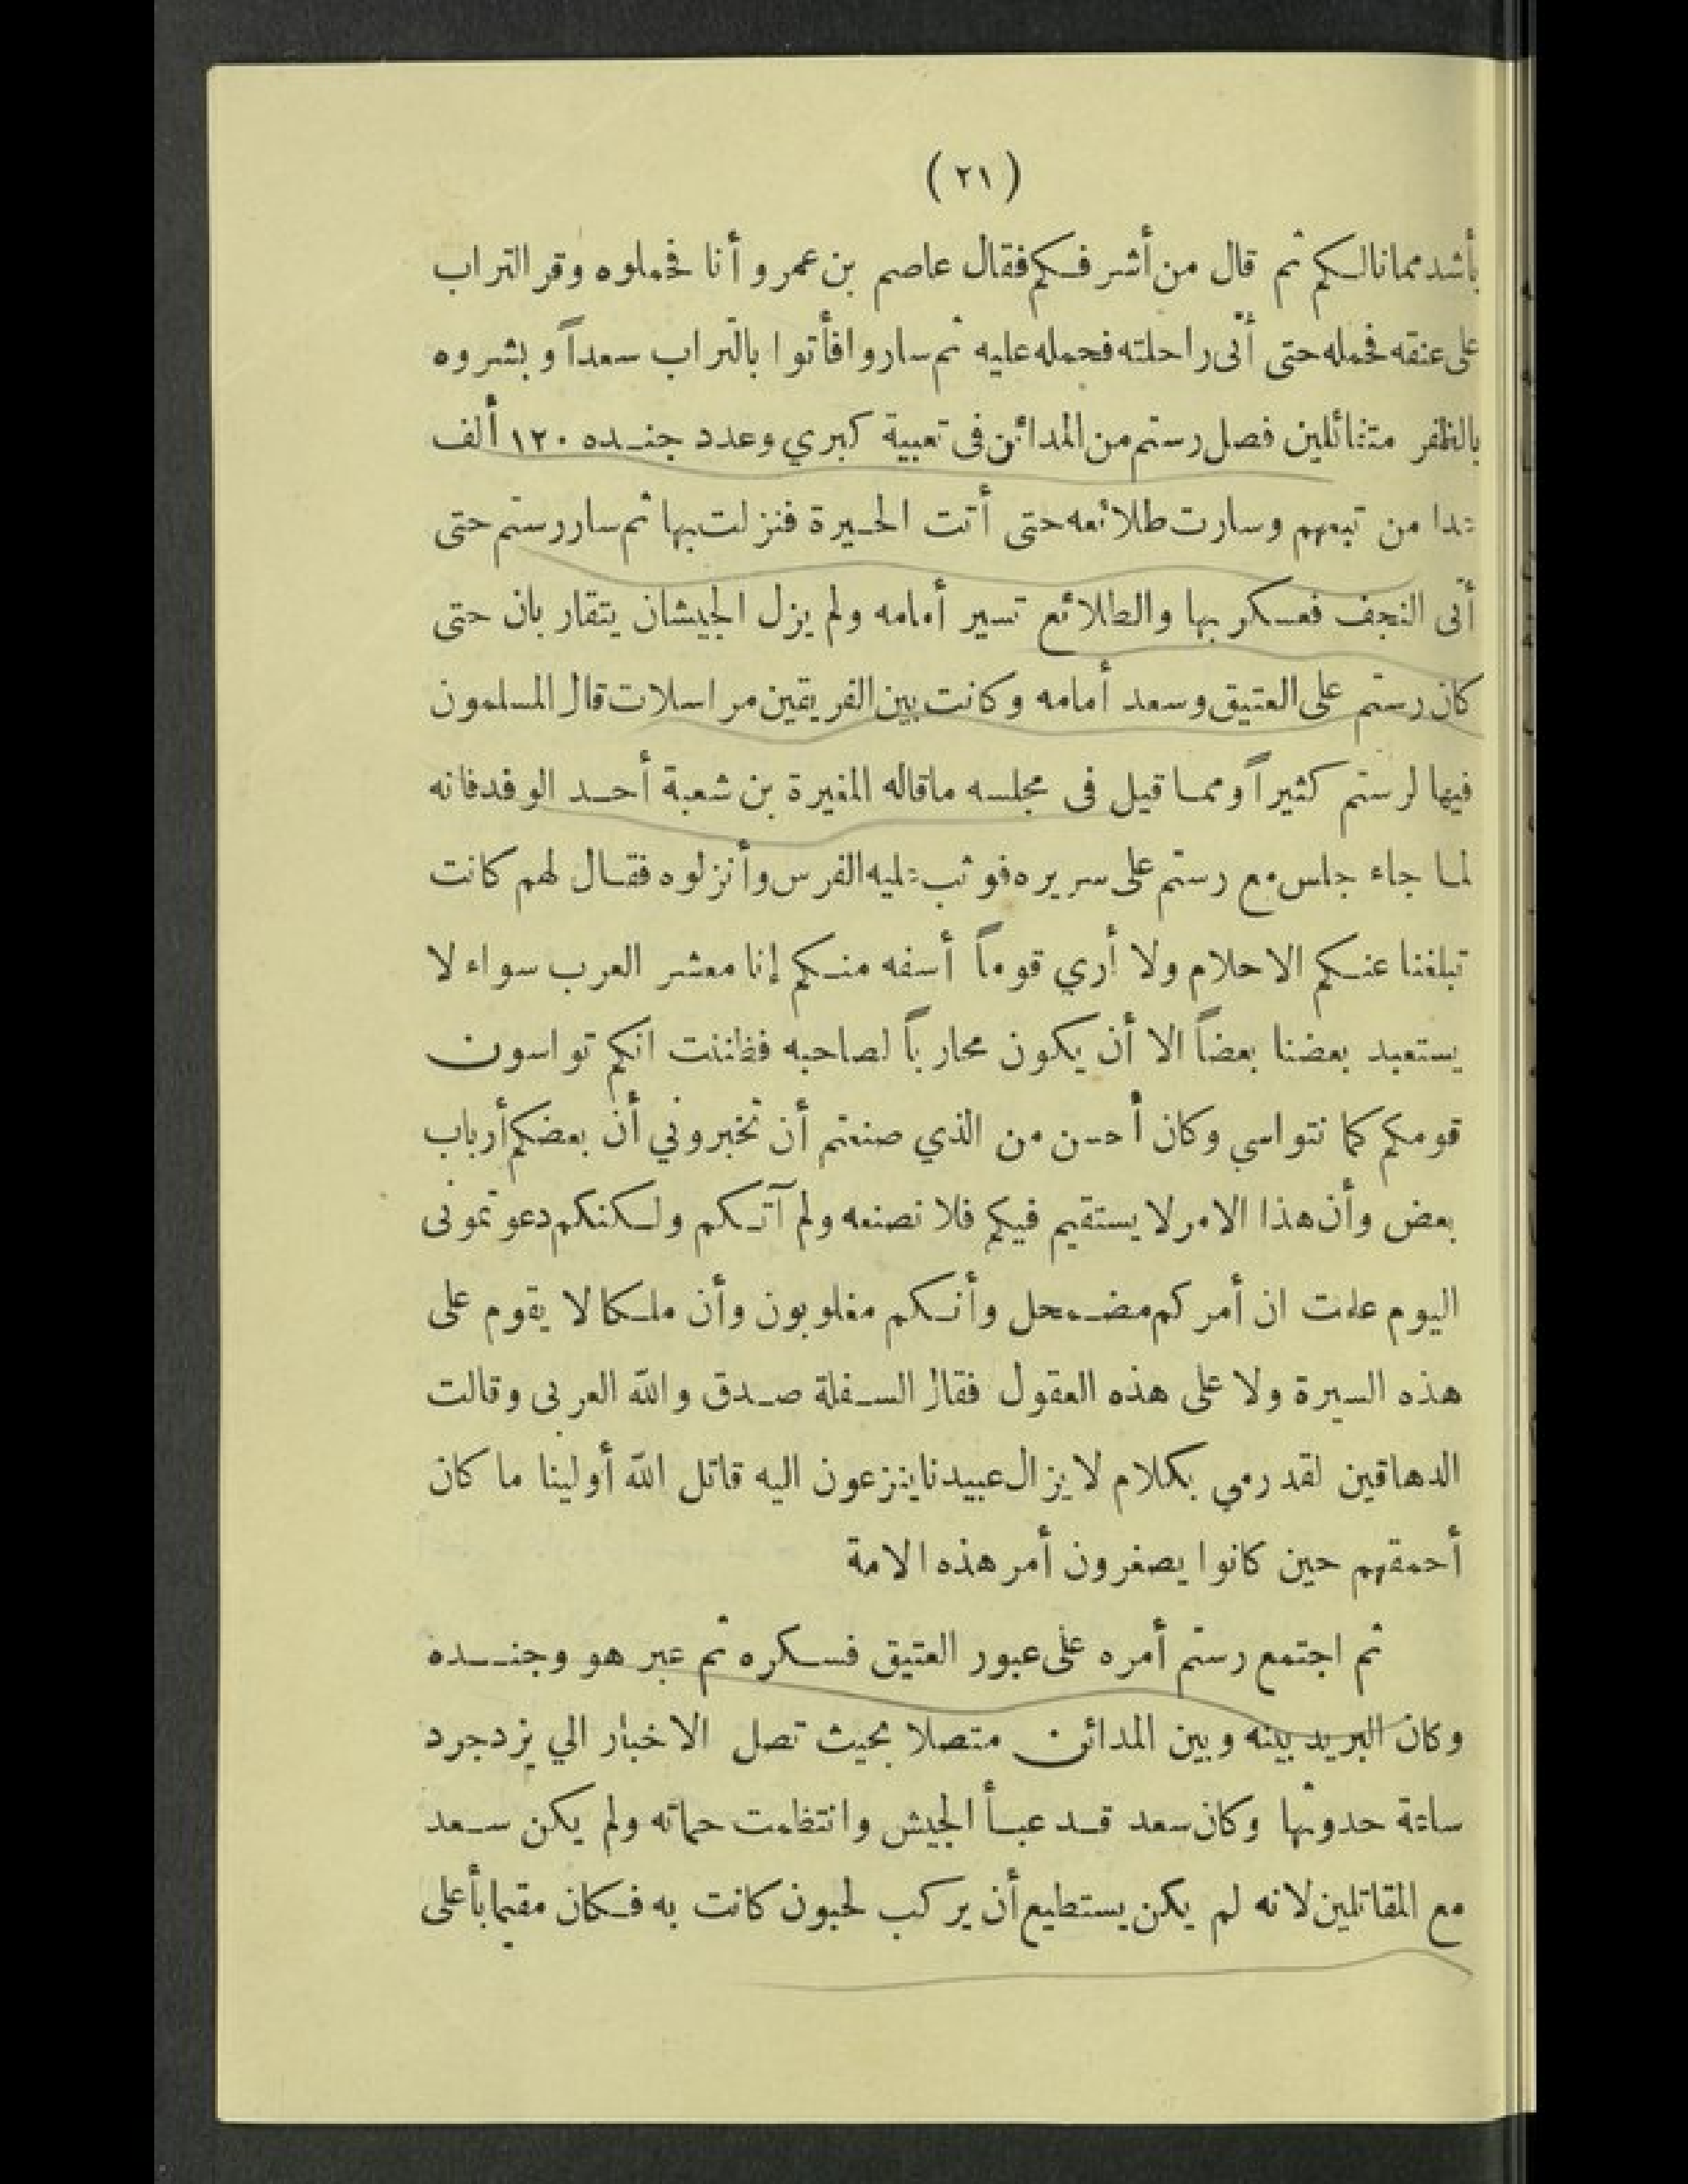 (٢١)
بأشد مما نالكم ثم قال من أشرفكم فقال عاصم بن عمرو أنا فحملوه وقر التراب
على عنقه فحمله حتى أتى راحلته فحمله عليه ثم ساروا فأتوا بالتراب سعداً وبشروه
بالظفر متفائلين فصل رستم من المدائن فى تعبية كبري وعدد جنده ١٢٠ ألف
عدا من تبعهم وسارت طلائعه حتى أتت الحيرة فنزلت بها ثم سار رستم حتى
أتى النجف فعسكر بها والطلائع تسير أمامه ولم يزل الجيشان يتقاربان حتى
كان رستم على العتيق وسعد أمامه وكانت بين الفريقين مراسلات قال المسلمون
فيها لرستم كثيراً ومما قيل فى مجلسه ماقاله المغيرة بن شعبة أحد الوفد فانه
لما جاء جلس مع رستم على سريره فوثب عليه الفرس وأنزلوه فقال لهم كانت
تبلغنا عنكم الاحلام ولا أري قوماً أسفه منكم إنا معشر العرب سواء لا
يستعبد بعضنا بعضاً الا أن يكون محارباً لصاحبه فظننت انكم تواسون
قومكم كما نتواسي وكان أحسن من الذي صنعتم أن تخبروني أن بعضكم أرباب
بعض وأن هذا الامر لا يستقيم فيكم فلا نصنعه ولم آتكم ولكنكم دعوتمونى
اليوم علمت ان أمركم مضمحل وأنكم مغلوبون وأن ملكا لا يقوم على
هذه السيرة ولا على هذه العقول فقال السفلة صدق والله العربى وقالت
الدهاقين لقد رمي بكلام لا يزال عبيدنا ينزعون اليه قاتل الله أولينا ما كان
أحمقهم حين كانوا يصغرون أمر هذه الامة
ثم اجتمع رستم أمره على عبور العتيق فسكره ثم عبر هو وجنده
وكان البريد بينه وبين المدائن متصلا بحيث تصل الاخبار الي يزدجرد
ساعة حدوثها وكان سعد قد عبأ الجيش وانتظمت حماته ولم يكن سعد
مع المقاتلين لانه لم يكن يستطيع أن يركب لحبون كانت به فكان مقيما بأعلى